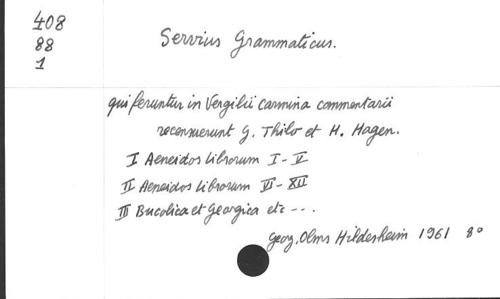 408
88
1
Servius Grammaticus.
qui feruntur in Vergilii carmina commentarii
recensuerunt G. Thilo et H. Hagen.
I Aeneidos librorum I-V
II Aeneidos librorum VI-XII
III Bucolica et Georgica etc ---.
Georg. Olms Hildesheim 1961 8°